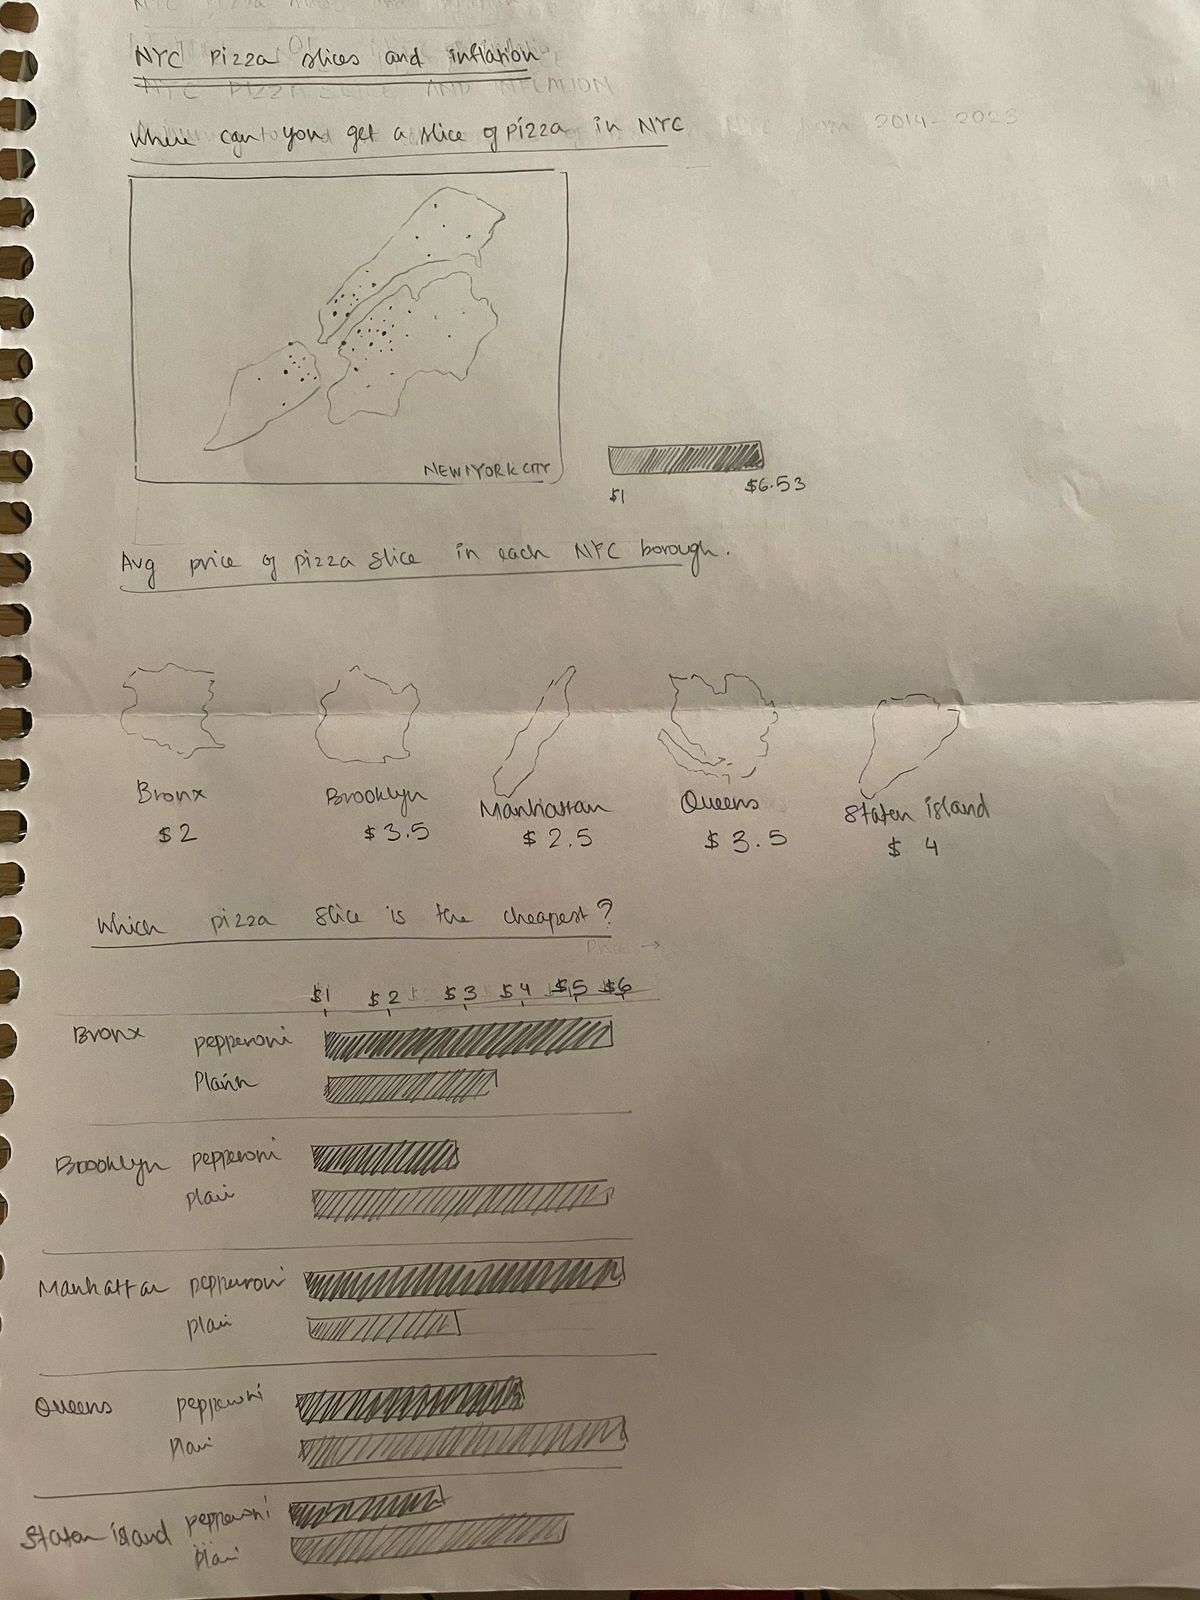 NYC pizza slices and inflation
NYC PIZZA SLICE AND INFLATION
Where can you get a slice of pizza in NYC
from 2014-2023
NEW YORK CITY
$1 $6.53
Avg price of pizza slice in each NYC borough.
Bronx Brooklyn Manhattan Queens Staten island
$2 $3.5 $2.5 $3.5 $4
Which pizza slice is the cheapest?
$1 $2 $3 $4 $5 $6
Bronx pepperoni
Plain
Brooklyn pepperoni
plain
Manhattan pepperoni
plain
Queens pepperoni
Plain
Staten island pepperoni
plain